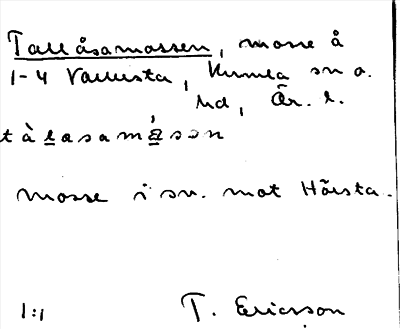 Tallåsamossen, mosse å
1-4 Vallersta, Kumla sn o.
hd, Ör. l.
tàlasamåsen
mosse i sv. mot Hörsta.
1:1 T. Ericsson